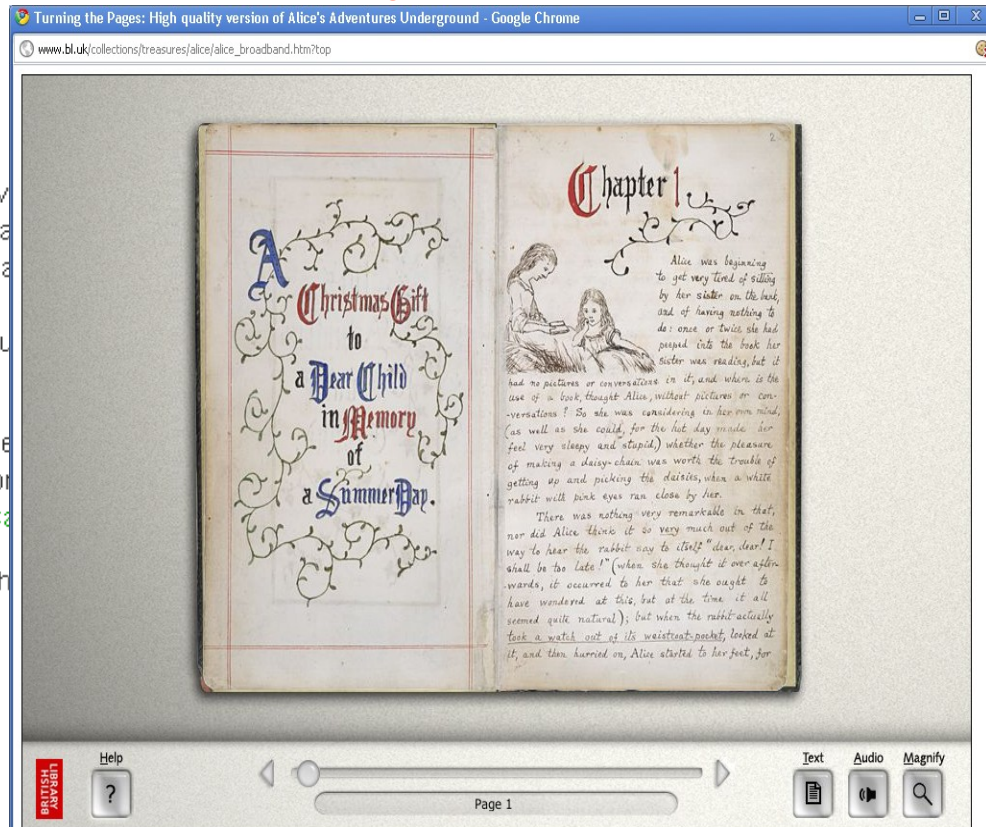 Turning the Pages: High quality version of Alice's Adventures Underground - Google Chrome
www.bl.uk/collections/treasures/alice/alice_broadband.htm?top
A
Christmas Gift
to
a Dear Child
in Memory
of
a Summer Day.
2
Chapter 1.
Alice was beginning
to get very tired of sitting
by her sister on the bank,
and of having nothing to
do: once or twice she had
peeped into the book her
sister was reading, but it
had no pictures or conversations in it, and where is the
use of a book, thought Alice, without pictures or con-
-versations? So she was considering in her own mind,
(as well as she could, for the hot day made her
feel very sleepy and stupid,) whether the pleasure
of making a daisy-chain was worth the trouble of
getting up and picking the daisies, when a white
rabbit with pink eyes ran close by her.
There was nothing very remarkable in that,
nor did Alice think it so very much out of the
way to hear the rabbit say to itself "dear, dear! I
shall be too late!" (when she thought it over after-
-wards, it occurred to her that she ought to
have wondered at this, but at the time it all
seemed quite natural); but when the rabbit actually
took a watch out of its waistcoat-pocket, looked at
it, and then hurried on, Alice started to her feet, for
BRITISH
LIBRARY
Help
?
Page 1
Text
Audio
Magnify